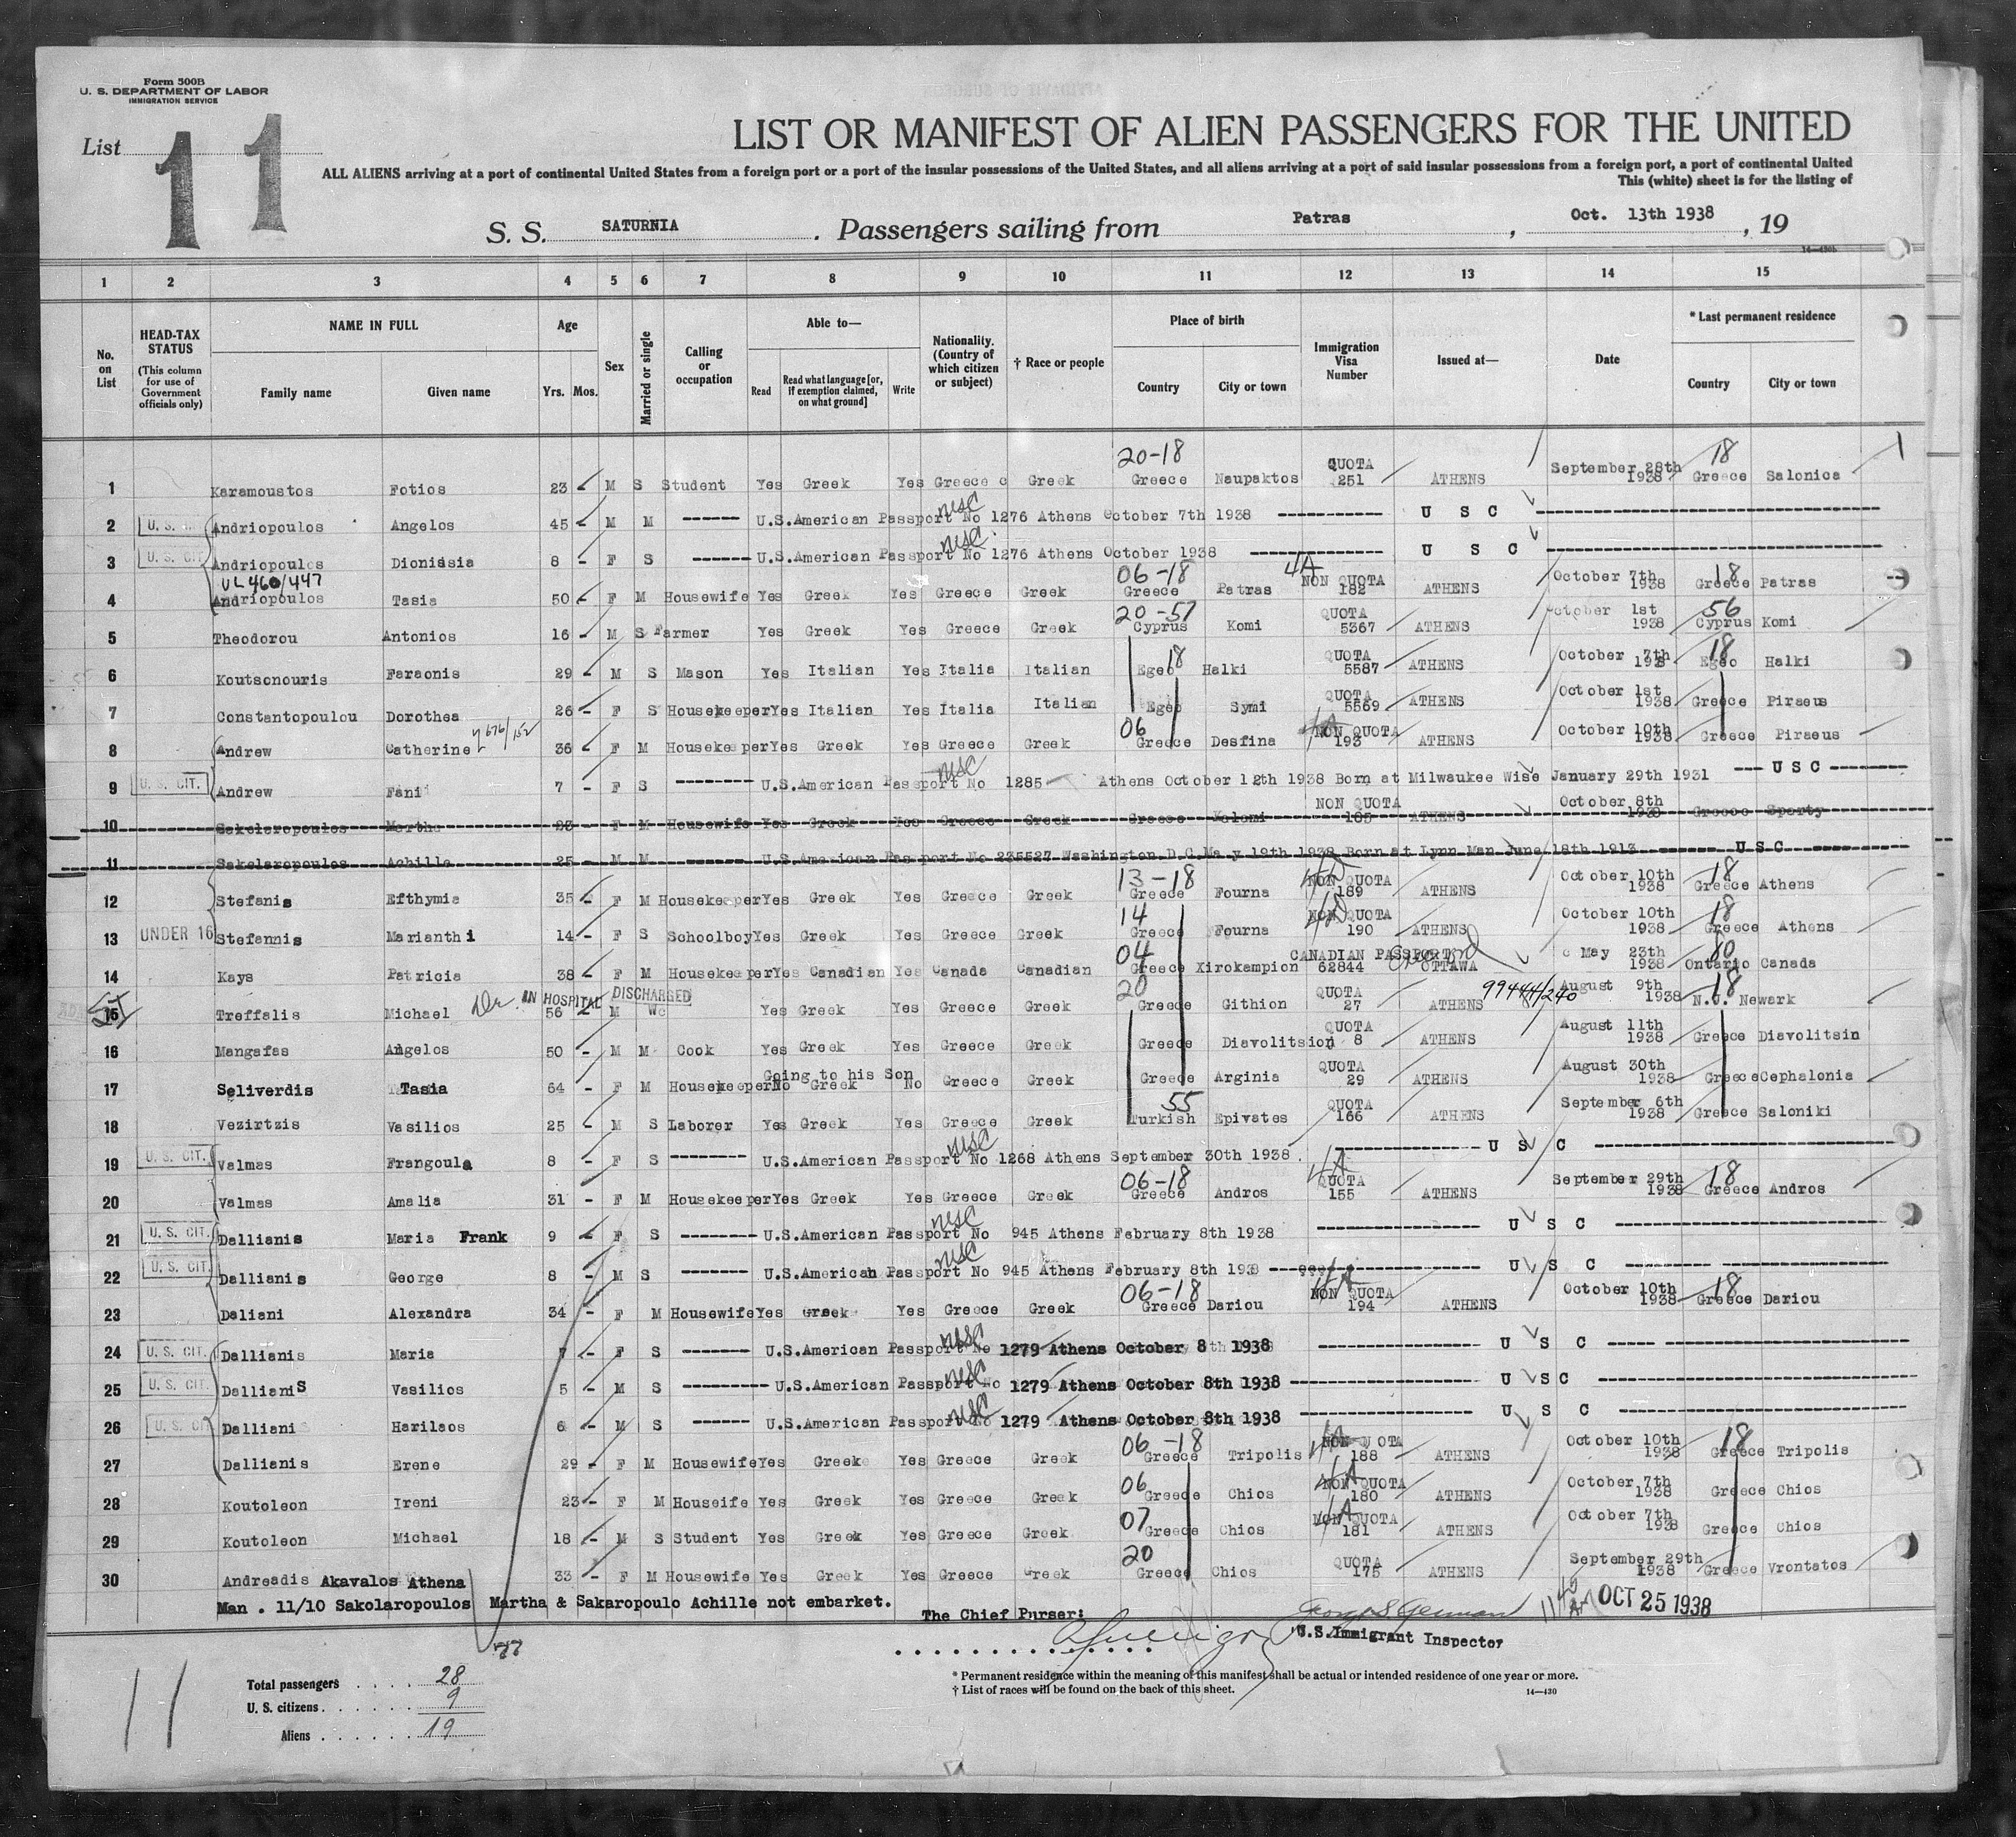 Form 500B
U. S. DEPARTMENT OF LABOR
IMMIGRATION SERVICE
List 11
LIST OR MANIFEST OF ALIEN PASSENGERS FOR THE UNITED
ALL ALIENS arriving at a port of continental United States from a foreign port or a port of the insular possessions of the United States, and all aliens arriving at a port of said insular possessions from a foreign port, a port of continental United
This (white) sheet is for the listing of
S. S. SATURNIA. Passengers sailing from Patras, Oct. 13th 1938, 19
1 2 3 4 5 6 7 8 9 10 11 12 13 14 15
No. on List
HEAD-TAX STATUS (This column for use of Government officials only)
NAME IN FULL Family name Given name
Age Yrs. Mos.
Sex
Married or single
Calling or occupation
Able to— Read Read what language [or, if exemption claimed, on what ground] Write
Nationality. (Country of which citizen or subject)
† Race or people
Place of birth Country City or town
Immigration Visa Number
Issued at—
Date
* Last permanent residence Country City or town
1 Karamoustos Fotios 23 M S Student Yes Greek Yes Greece Greek 20-18 Greece Naupaktos QUOTA 251 ATHENS September 28th 1938 18 Greece Salonica
2 Andriopoulos Angelos 45 M M U.S.American Passport No 1276 Athens October 7th 1938 U S C
3 U. S. CIT Andriopoulos Dionisia 8 - F S U.S.American Passport No 1276 Athens October 1938 U S C
4 UL 460/447 Andriopoulos Tasia 50 F M Housewife Yes Greek Yes Greece Greek 06-18 Greece Patras 4A NON QUOTA 182 ATHENS October 7th 1938 18 Greece Patras
5 Theodorou Antonios 16 M S Farmer Yes Greek Yes Greece Greek 20-57 Cyprus Komi QUOTA 5367 ATHENS October 1st 1938 56 Cyprus Komi
6 Koutsonouris Faraonis 29 M S Mason Yes Italian Yes Italia Italian 18 Egeo Halki QUOTA 5587 ATHENS October 7th 1938 18 Egeo Halki
7 Constantopoulou Dorothea 26 - F S Housekeeper Yes Italian Yes Italia Italian Egeo Symi QUOTA 5569 ATHENS October 1st 1938 Greece Piraeus
8 Andrew Catherine 36 F M Housekeeper Yes Greek Yes Greece Greek 06 Greece Desfina NON QUOTA 193 ATHENS October 10th 1938 Greece Piraeus
9 U. S. CIT. Andrew Fani 7 - F S U.S.American Passport No 1285 Athens October 12th 1938 Born at Milwaukee Wise January 29th 1931 U S C
10 Sakelaropoulos Martha 23 F M Housewife Yes Greek Yes Greece Greek Greece Kalami NON QUOTA 185 ATHENS October 8th 1938 Greece Sparty
11 Sakelaropoulos Achille 25 M M U.S.American Passport No 235527 Washington D.C.May 19th 1938 Born at Lynn Man June 18th 1913 U S C
12 Stefanis Efthymia 35 F M Housekeeper Yes Greek Yes Greece Greek 13-18 Greece Fourna NON QUOTA 189 ATHENS October 10th 1938 18 Greece Athens
13 UNDER 16 Stefannis Marianthi 14 - F S Schoolboy Yes Greek Yes Greece Greek 14 Greece Fourna NON QUOTA 190 ATHENS October 10th 1938 18 Greece Athens
14 Kays Patricia 38 F M Housekeeper Yes Canadian Yes Canada Canadian 04 Greece Xirokampion CANADIAN PASSPORT 62844 OTTAWA May 23th 1938 Ontario Canada
15 Treffalis Michael IN HOSPITAL DISCHARGED 56 M Yes Greek Yes Greece Greek 20 Greece Githion QUOTA 27 ATHENS August 9th 1938 18 N.J. Newark
16 Mangafas Angelos 50 M M Cook Yes Greek Yes Greece Greek Greece Diavolitsion QUOTA 8 ATHENS August 11th 1938 Greece Diavolitsin
Going to his Son
17 Seliverdis Tasia 64 - F M Housekeeper No Greek No Greece Greek Greece Arginia QUOTA 29 ATHENS August 30th 1938 Greece Cephalonia
18 Vezirtzis Vasilios 25 M S Laborer Yes Greek Yes Greece Greek 55 Turkish Epivates QUOTA 166 ATHENS September 6th 1938 Greece Saloniki
19 U. S. CIT. Valmas Frangoula 8 - F S U.S.American Passport No 1268 Athens September 30th 1938 U S C
20 Valmas Amalia 31 - F M Housekeeper Yes Greek Yes Greece Greek 06-18 Greece Andros QUOTA 155 ATHENS September 29th 1938 18 Greece Andros
21 U. S. CIT. Dallianis Maria Frank 9 F S U.S.American Passport No 945 Athens February 8th 1938 U S C
22 U. S. CIT. Dallianis George 8 - M S U.S.American Passport No 945 Athens February 8th 1938 U S C
23 Daliani Alexandra 34 - F M Housewife Yes Greek Yes Greece Greek 06-18 Greece Dariou NON QUOTA 194 ATHENS October 10th 1938 18 Greece Dariou
24 U. S. CIT. Dallianis Maria 7 - F S U.S.American Passport No 1279 Athens October 8 1938 U S C
25 U. S. CIT. Dallianis Vasilios 5 - M S U.S.American Passport No 1279 Athens October 8th 1938 U S C
26 U. S. CIT Dalliani Harilaos 6 - M S U.S.American Passport No 1279 Athens October 8th 1938 U S C
27 Dallianis Erene 29 - F M Housewife Yes Greek Yes Greece Greek 06-18 Greece Tripolis NON QUOTA 188 ATHENS October 10th 1938 18 Greece Tripolis
28 Koutoleon Ireni 23 - F M Houseife Yes Greek Yes Greece Greek 06 Greece Chios NON QUOTA 180 ATHENS October 7th 1938 Greece Chios
29 Koutoleon Michael 18 - M S Student Yes Greek Yes Greece Greek 07 Greece Chios NON QUOTA 181 ATHENS October 7th 1938 Greece Chios
30 Andreadis Akavalos Athena 33 - F M Housewife Yes Greek Yes Greece Greek 20 Greece Chios QUOTA 175 ATHENS September 29th 1938 Greece Vrontatos
Man . 11/10 Sakolaropoulos Martha & Sakaropoulo Achille not embarket.
The Chief Purser:
OCT 25 1938
U.S.Immigrant Inspector
11
Total passengers 28
U. S. citizens 9
Aliens 19
* Permanent residence within the meaning of this manifest shall be actual or intended residence of one year or more.
† List of races will be found on the back of this sheet.
14—430